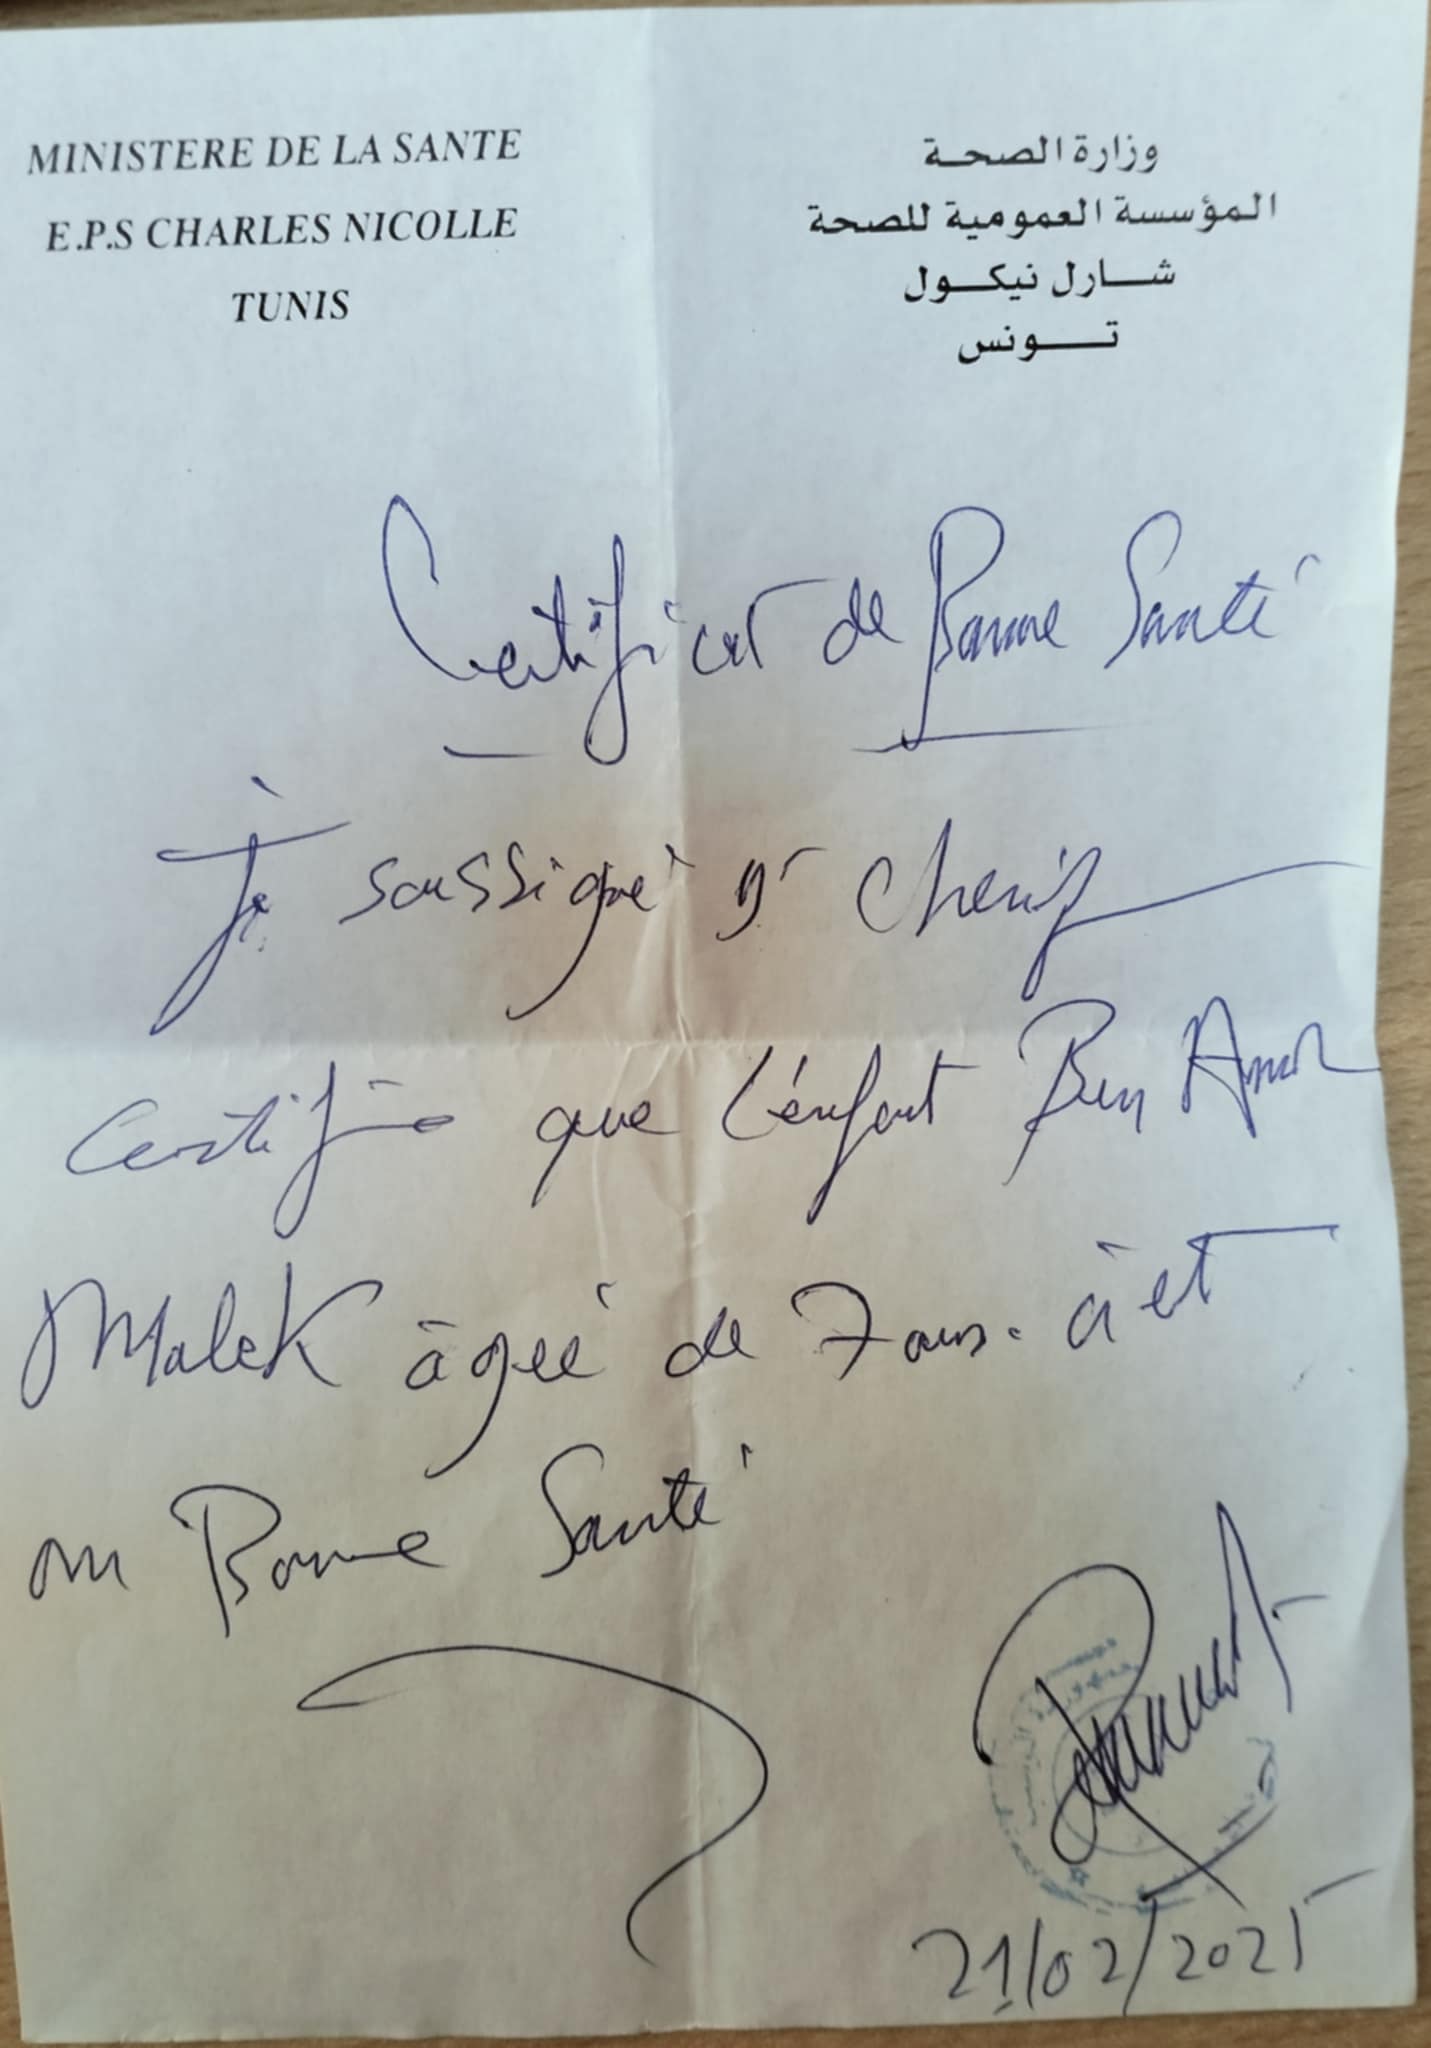 MINISTERE DE LA SANTE
E.P.S CHARLES NICOLLE
TUNIS
وزارة الصحة
المؤسسة العمومية للصحة
شارل نيكول
تونس
Certificat de Bonne Santé
Je soussigné Dr Cherif
Certifie que l'enfant Ben Amor
Malek âgée de 7 ans. à et
en Bonne Santé
21/02/2025